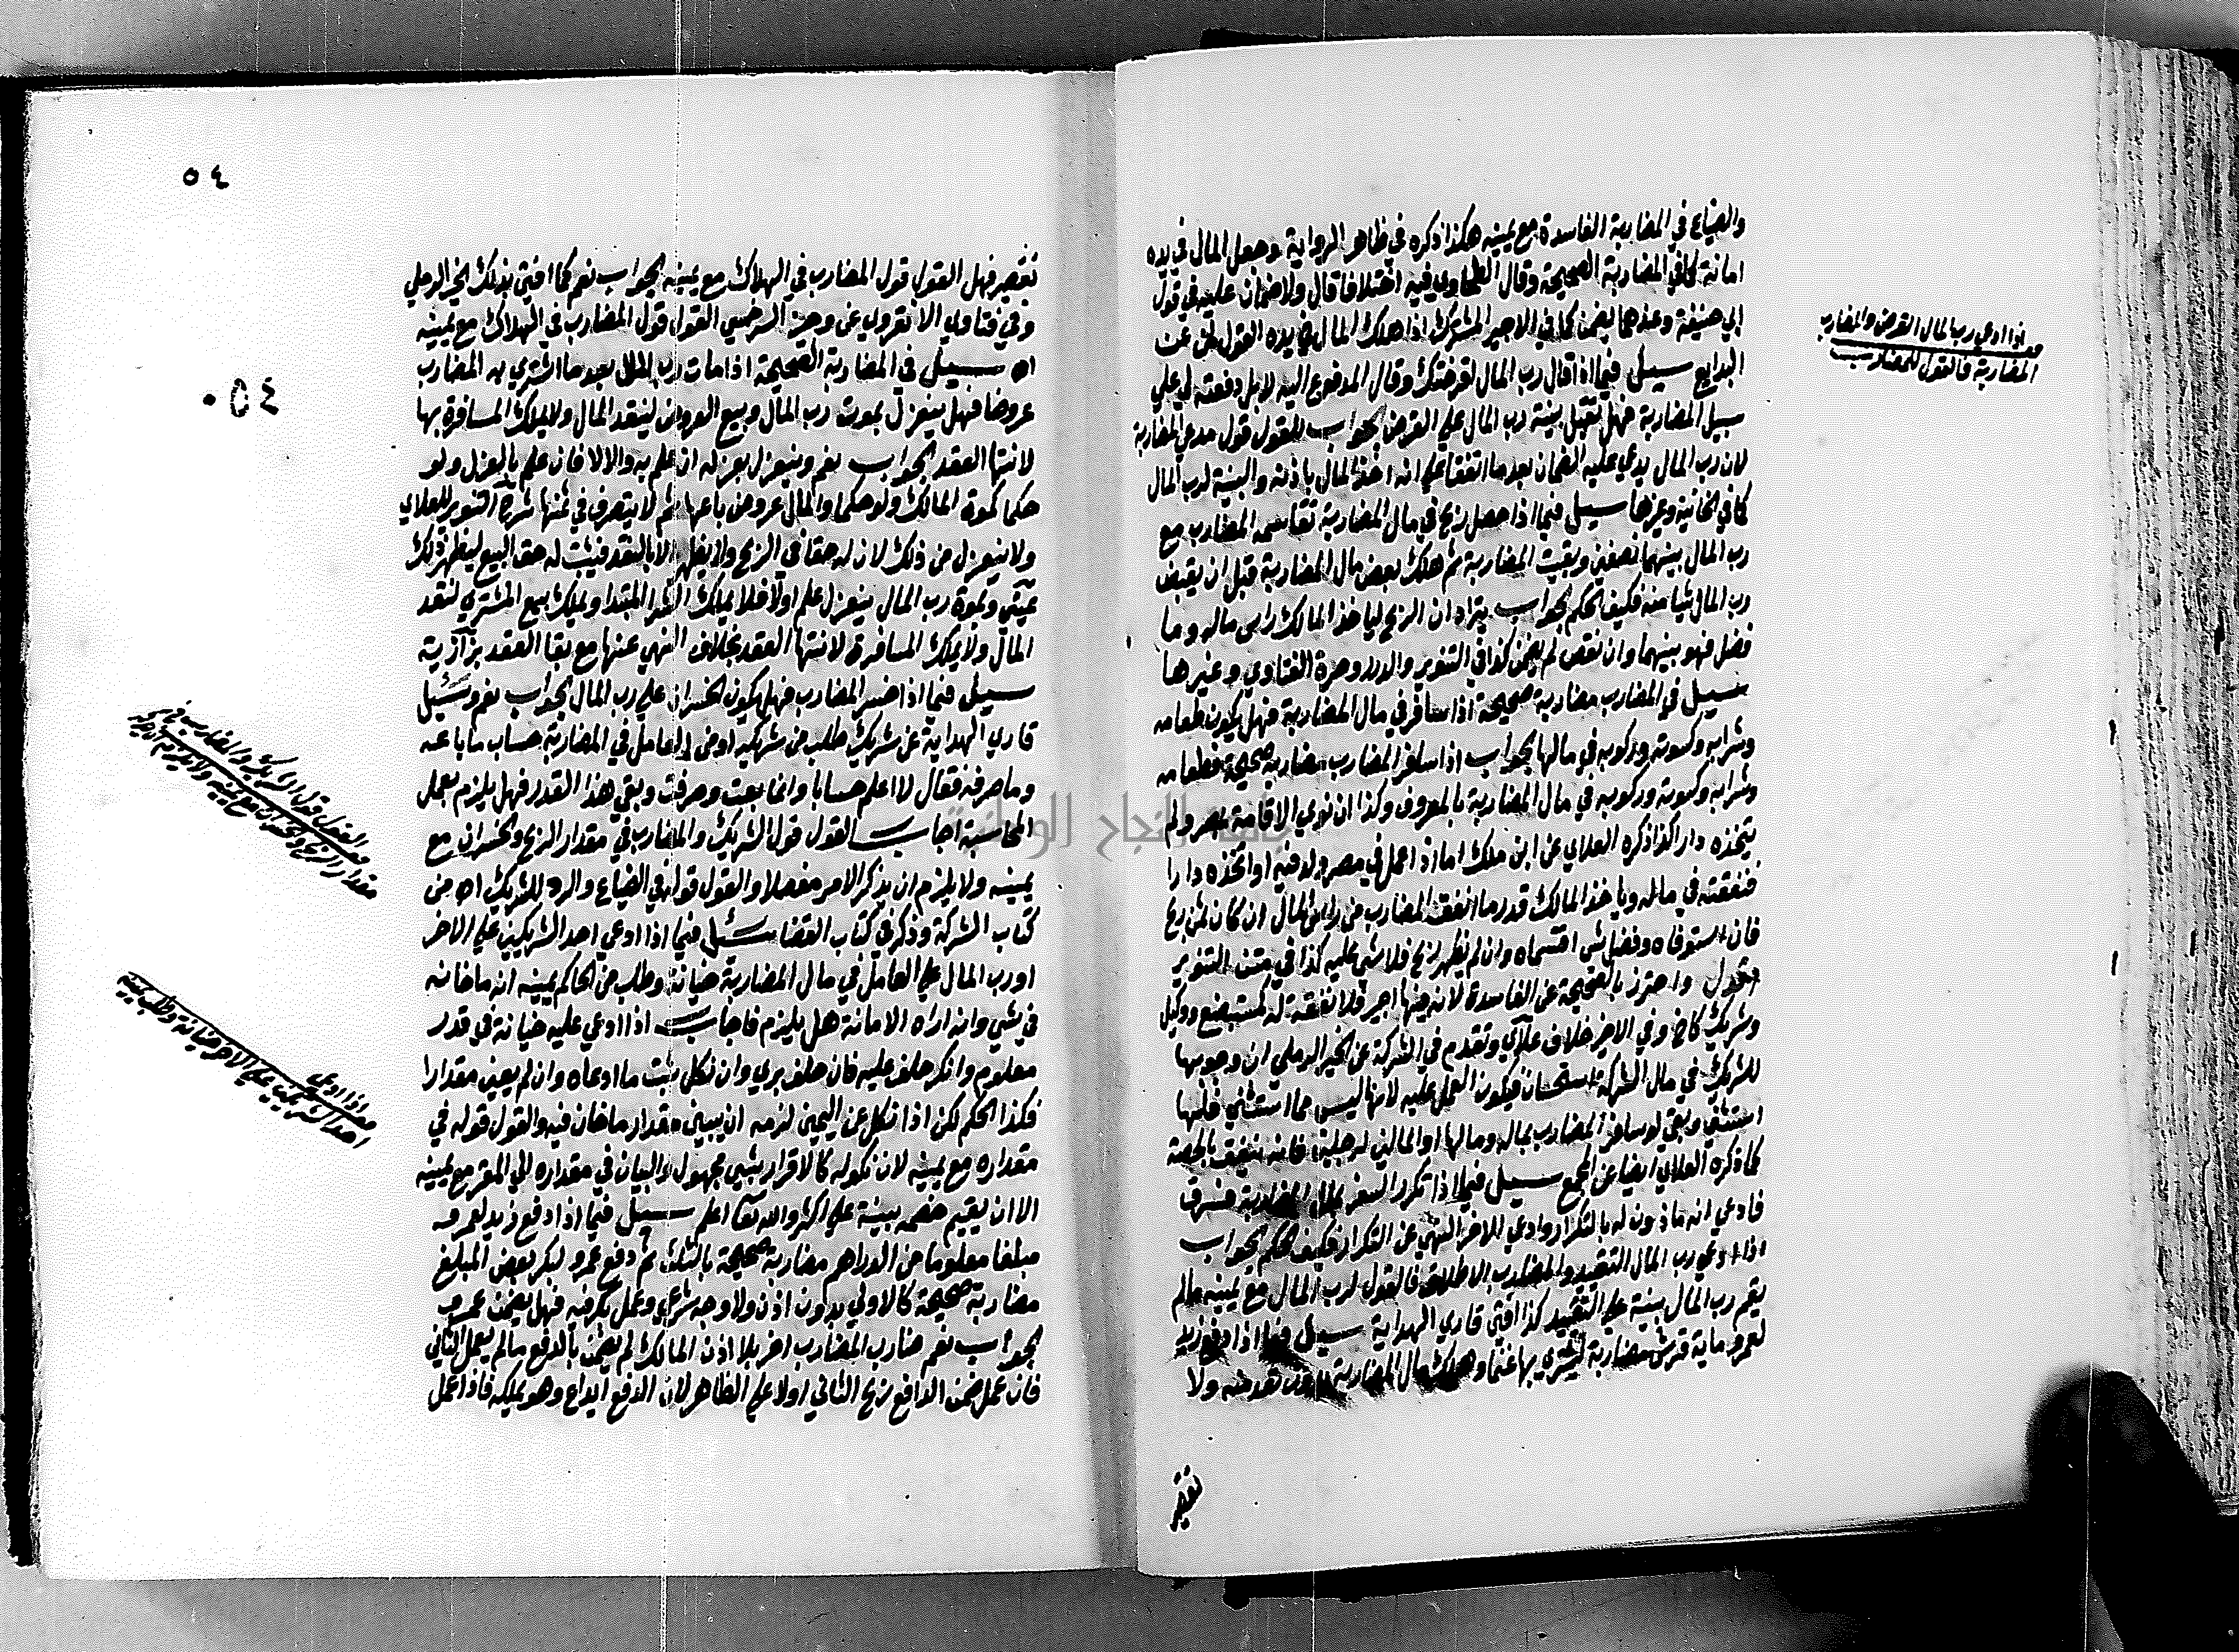 والضياع في المضاربة الفاسدة مع يمينه هكذا ذكره في ظاهر الرواية وجعل المال في يده
امانة كما في المضاربة الصحيحة وقال الطحاوي فيه اختلاف قال ولا ضمان عليه في قول
ابي حنيفة وعندهما يضمن كما في الاجير المشترك اذا هلك المال في يده القول من عن
البدايع سيل فيما اذا قال رب المال اقرضتك وقال المدفوع اليه لا بل دفعته لي علي
سبيل المضاربة فهل تقبل بينة رب المال علي القرض الجواب القول قول مدعي المضاربة
لان رب المال يدعي عليه الضمان بعد ما اتفقا علي انه اخذ المال باذنه والبينة لرب المال
كما في الخانية وغيرها سيل فيما اذا حصل ربح في مال المضاربة تقاسمه المضارب مع
رب المال بينهما نصفين وبقيت المضاربة ثم هلك بعض مال المضاربة قبل ان يقبض
رب المال شيا منه فكيف الحكم الجواب يترادان الربح لياخذ المالك راس ماله وما
فضل فهو بينهما وان نقص لم يضمن كذا في التنوير والدرر وصرة الفتاوي وغيرها
سيل في المضارب مضاربة صحيحة اذا سافر في مال المضاربة فهل يكون طعامه
وشرابه وكسوته وركوبه في مالها الجواب اذا سافر المضارب مضاربة صحيحة فطعامه
وشرابه وكسوته وركوبه في مال المضاربة بالمعروف وكذا ان نوي الاقامة بمصر ولم
يتخذه دارا كذا ذكره العلاي عن ابن ملك اما اذا عمل في مصر ولد فيه او اتخذه دارا
فنفقته في ماله وياخذ المالك قدر ما انفقه المضارب من راس المال ان كان ثم ربح
فان استوفاه وفضل شي اقتسماه وان لم يظهر ربح فلا شي عليه كذا في متن التنوير
اقول واحترز بالصحيحة عن الفاسدة لانه فيها اجير فلا نفقة له كمستبضع ووكيل
وشريك كافي وفي الاخير خلاف علاي وتقدم في الشركة عن الخير الرملي ان وجوبها
للشريك في مال الشركة استحسان فيكون العمل عليه لانها ليس مما استثني فلها
استثني وبقي لو سافر المضارب بماله ومالها او المالين لرجلين فانه ينفق بالحصة
كما ذكره العلاي ايضا عن المجمع سيل فيما اذا تكرر السفر بمال المضاربة فسرق
فادعي انه ماذون له بالتكرار وادعي الاخر النهي عن التكرار فكيف الحكم الجواب
اذا ادعي رب المال التقييد والمضارب الاطلاق فالقول لرب المال مع يمينه مالم
يقم رب المال بينة علي التقييد كذا افتي قاري الهداية سيل فيما اذا دفع زيد
لعمرو ماية قرش مضاربة ليشتري بها غنما وهلك مال المضاربة بدون تعد منه ولا
تقصير
اذا ادعي رب المال القرض والمضارب
المضاربة فالقول للمضارب
٥٤
٠٥٤
تقصير فهل القول قول المضارب في الهلاك مع يمينه الجواب نعم كما افتي بذلك الخير الرملي
وفي فتاوي الانقروي عن وجيز السرخسي القول قول المضارب في الهلاك مع يمينه
اه سيل في المضاربة الصحيحة اذا مات رب المال بعد ما اشتري به المضارب
عروضا فهل ينعزل بموت رب المال وبيع العروض لينقد المال ولا يملك المسافرة بها
لانتها العقد الجواب نعم وينعزل بعزله ان علم به والا لا فان علم بالعزل ولو
حكما كموت المالك ولو حكما والمال عروض باعها ثم لا يتصرف في ثمنها شرح التنوير للعلاي
ولا ينعزل من ذلك لان له حقا في الربح ولا يظهر الا بالنقد فيثبت له حق البيع ليظهر ذلك
عيني وبموت رب المال ينعزل علم اولا فلا يملك الشرا المبتدا ويملك بيع المشتري لنقد
المال ولا يملك المسافرة لانتها العقد بخلاف النهي عنها مع بقا العقد بزازية
سيل فيما اذا خسر المضارب فهل يكون الخسران علي رب المال الجواب نعم وسيل
قاري الهداية عن شريك طلب من شريكه او من العامل في المضاربة حساب ما باعه
وما صرفه فقال لا اعلم حسابا وانما بعت وصرفت وبقي هذا القدر فهل يلزم بعمل
المحاسبة اجاب القول قول الشريك والمضارب في مقدار الربح والخسران مع
يمينه ولا يلزم ان يذكر الامر مفصلا والقول قوله في الضياع والرد للشريك اه من
كتاب الشركة وذكر في كتاب القضا سيل فيما اذا ادعي احد الشريكين علي الاخر
او رب المال علي العامل في مال المضاربة خيانة وطلب من الحاكم يمينه انه ما خانه
في شي وانه اداه الامانة هل يلزم فاجاب اذا ادعي عليه خيانة في قدر
معلوم وانكر حلف عليه فان حلف بري وان نكل ثبت ما ادعاه وان لم يعين مقدارا
فكذا الحكم لكن اذا نكل عن اليمين لزمه ان يبين مقدار ما خان فيه والقول قوله في
مقداره مع يمينه لان نكوله كالاقرار بشي مجهول والبيان في مقداره الي المقر مع يمينه
الا ان يقيم خصمه بينة علي اكثر والله تعا اعلم سيل فيما اذا دفع زيد لعمرو
مبلغا معلوما من الدراهم مضاربة صحيحة بالثلث ثم دفع عمرو لبكر بعض المبلغ
مضاربة صحيحة كالاولي بدون اذن ولا وجه شرعي وعمل بكر فيه فهل يضمن عمرو
الجواب نعم ضارب المضارب اخر بلا اذن المالك لم يضمن بالدفع مالم يعمل الثاني
فان عمل ضمن الدافع ربح الثاني اولا علي الظاهر لان الدفع ايداع وهو يملكه فاذا عمل
القول قول الشريك والمضارب في
مقدار الربح والخسران مع يمينه ولا يلزم
اذا ادعي
احد الشريكين علي الاخر خيانة وطلب يمينه